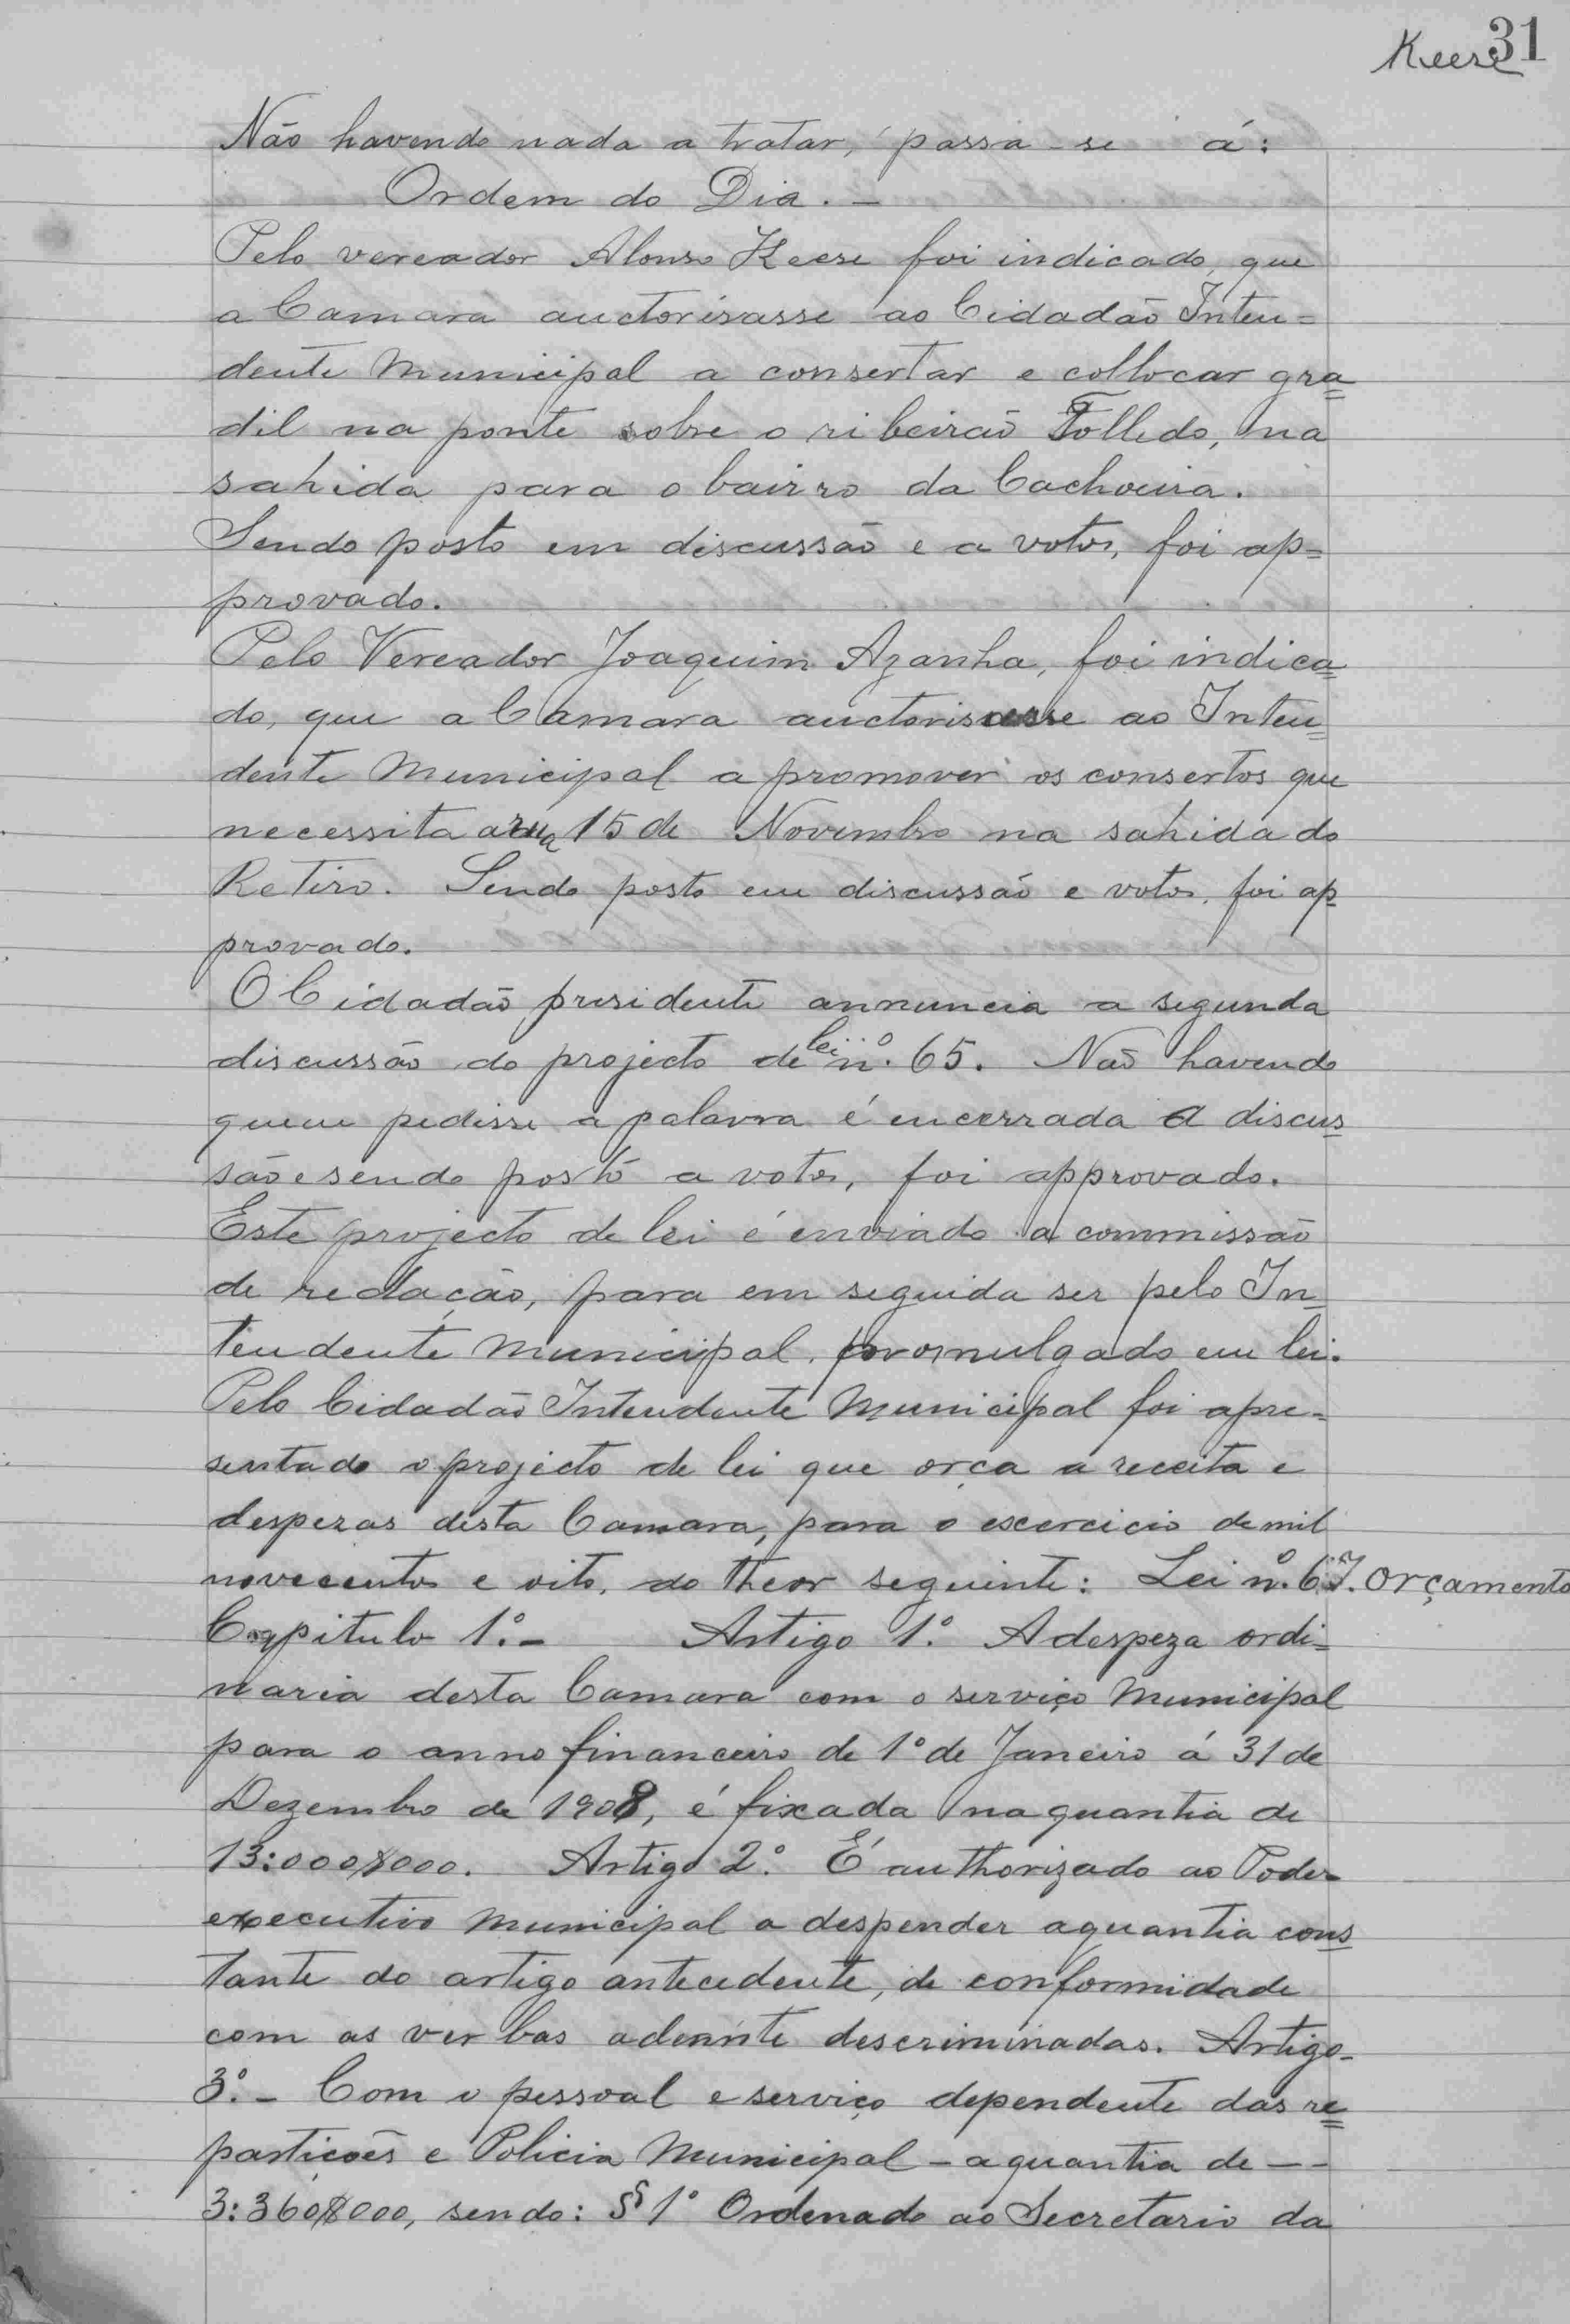 Keese 31
Não havendo nada a tratar, passa-se á:
Ordem do Dia. -
Pelo vereador Alonso Keese foi indicado, que
a Camara auctorisasse ao Cidadão Inten=
dente Municipal a consertar e collocar gra=
dil na ponte sobre o ribeirão Tolledo, na
sahida para o bairro da Cachoeira.
Sendo posto em discussão e a votos, foi ap=
provado.
Pelo Vereador Joaquim Azanha, foi indica=
do, que a Camara auctorisasse ao Inten=
dente Municipal a promover os consertos que
necessita a rua 15 de Novembro na sahida do
Retiro. Sendo posto em discussão e votos, foi ap=
provado.
O Cidadão presidente annuncia a segunda
discussão do projecto de lei nº. 65. Não havendo
quem pedisse a palavra é encerrada a discus=
são e sendo posto a votos, foi approvado.
Este projecto de lei é enviado a commissão
de redacção, para em seguida ser pelo In=
tendente Municipal, promulgado em lei.
Pelo Cidadão Intendente Municipal foi apre=
sentado o projecto de lei que orça a receita e
despezas desta Camara, para o excercicio de mil
novecentos e oito, do theor seguinte: Lei nº. 67. Orçamento
Capitulo 1º.- Artigo 1º. A despeza ordi=
naria desta Camara com o serviço Municipal
para o anno financeiro de 1º de Janeiro á 31 de
Dezembro de 1908, é fixada na quantia de
13:000$000. Artigo 2º. É authorizado ao Poder
executivo Municipal a despender a quantia cons=
tante do artigo antecedente, de conformidade
com as verbas adeante descriminadas. Artigo-
3º.- Com o pessoal e serviço dependente das re=
partições e Policia Municipal - a quantia de --
3:360$000, sendo: § 1º Ordenado ao Secretario da